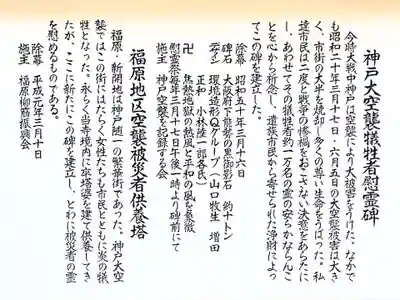 神戸大空襲犠牲者慰霊碑
今時大戦中神戸は空襲により大被害をうけた、なかで
も昭和二十年三月十七日・六月五日の大空襲被害は大き
く、市街の大半を焼却し多くの尊い生命をうばった。私
達市民は二度と戦争の惨禍をおこさない決意をあらたに
し、あわせてその犠牲者約一万名の霊の安らかならんこ
とを心から祈念し、遺族市民から寄せられた浄財によっ
てこの碑を建立した。
除幕 昭和五十年三月十六日
碑石 大阪府下能勢の黒御影石 約十トン
デザイン 環境造形Qグループ(山口牧生 増田
正和 小林陸一郎各氏)
焦熱地獄の熱風と平和の風を象徴
慰霊祭毎年三月十七日午後一時より碑前にて
施主 神戸空襲を記録する会
福原地区空襲被災者供養塔
福原・新開地は神戸随一の繁華街であった。神戸大空
襲ではこの街にはたらく女性たちも市民とともに炎の犠
牲となった。永らく当寺境内に卒塔婆を建て供養してき
たが、ここに新たにこの碑を建立し、とわに被災者の霊
を慰めるものである。
除幕 平成元年三月十日
施主 福原柳筋振興会